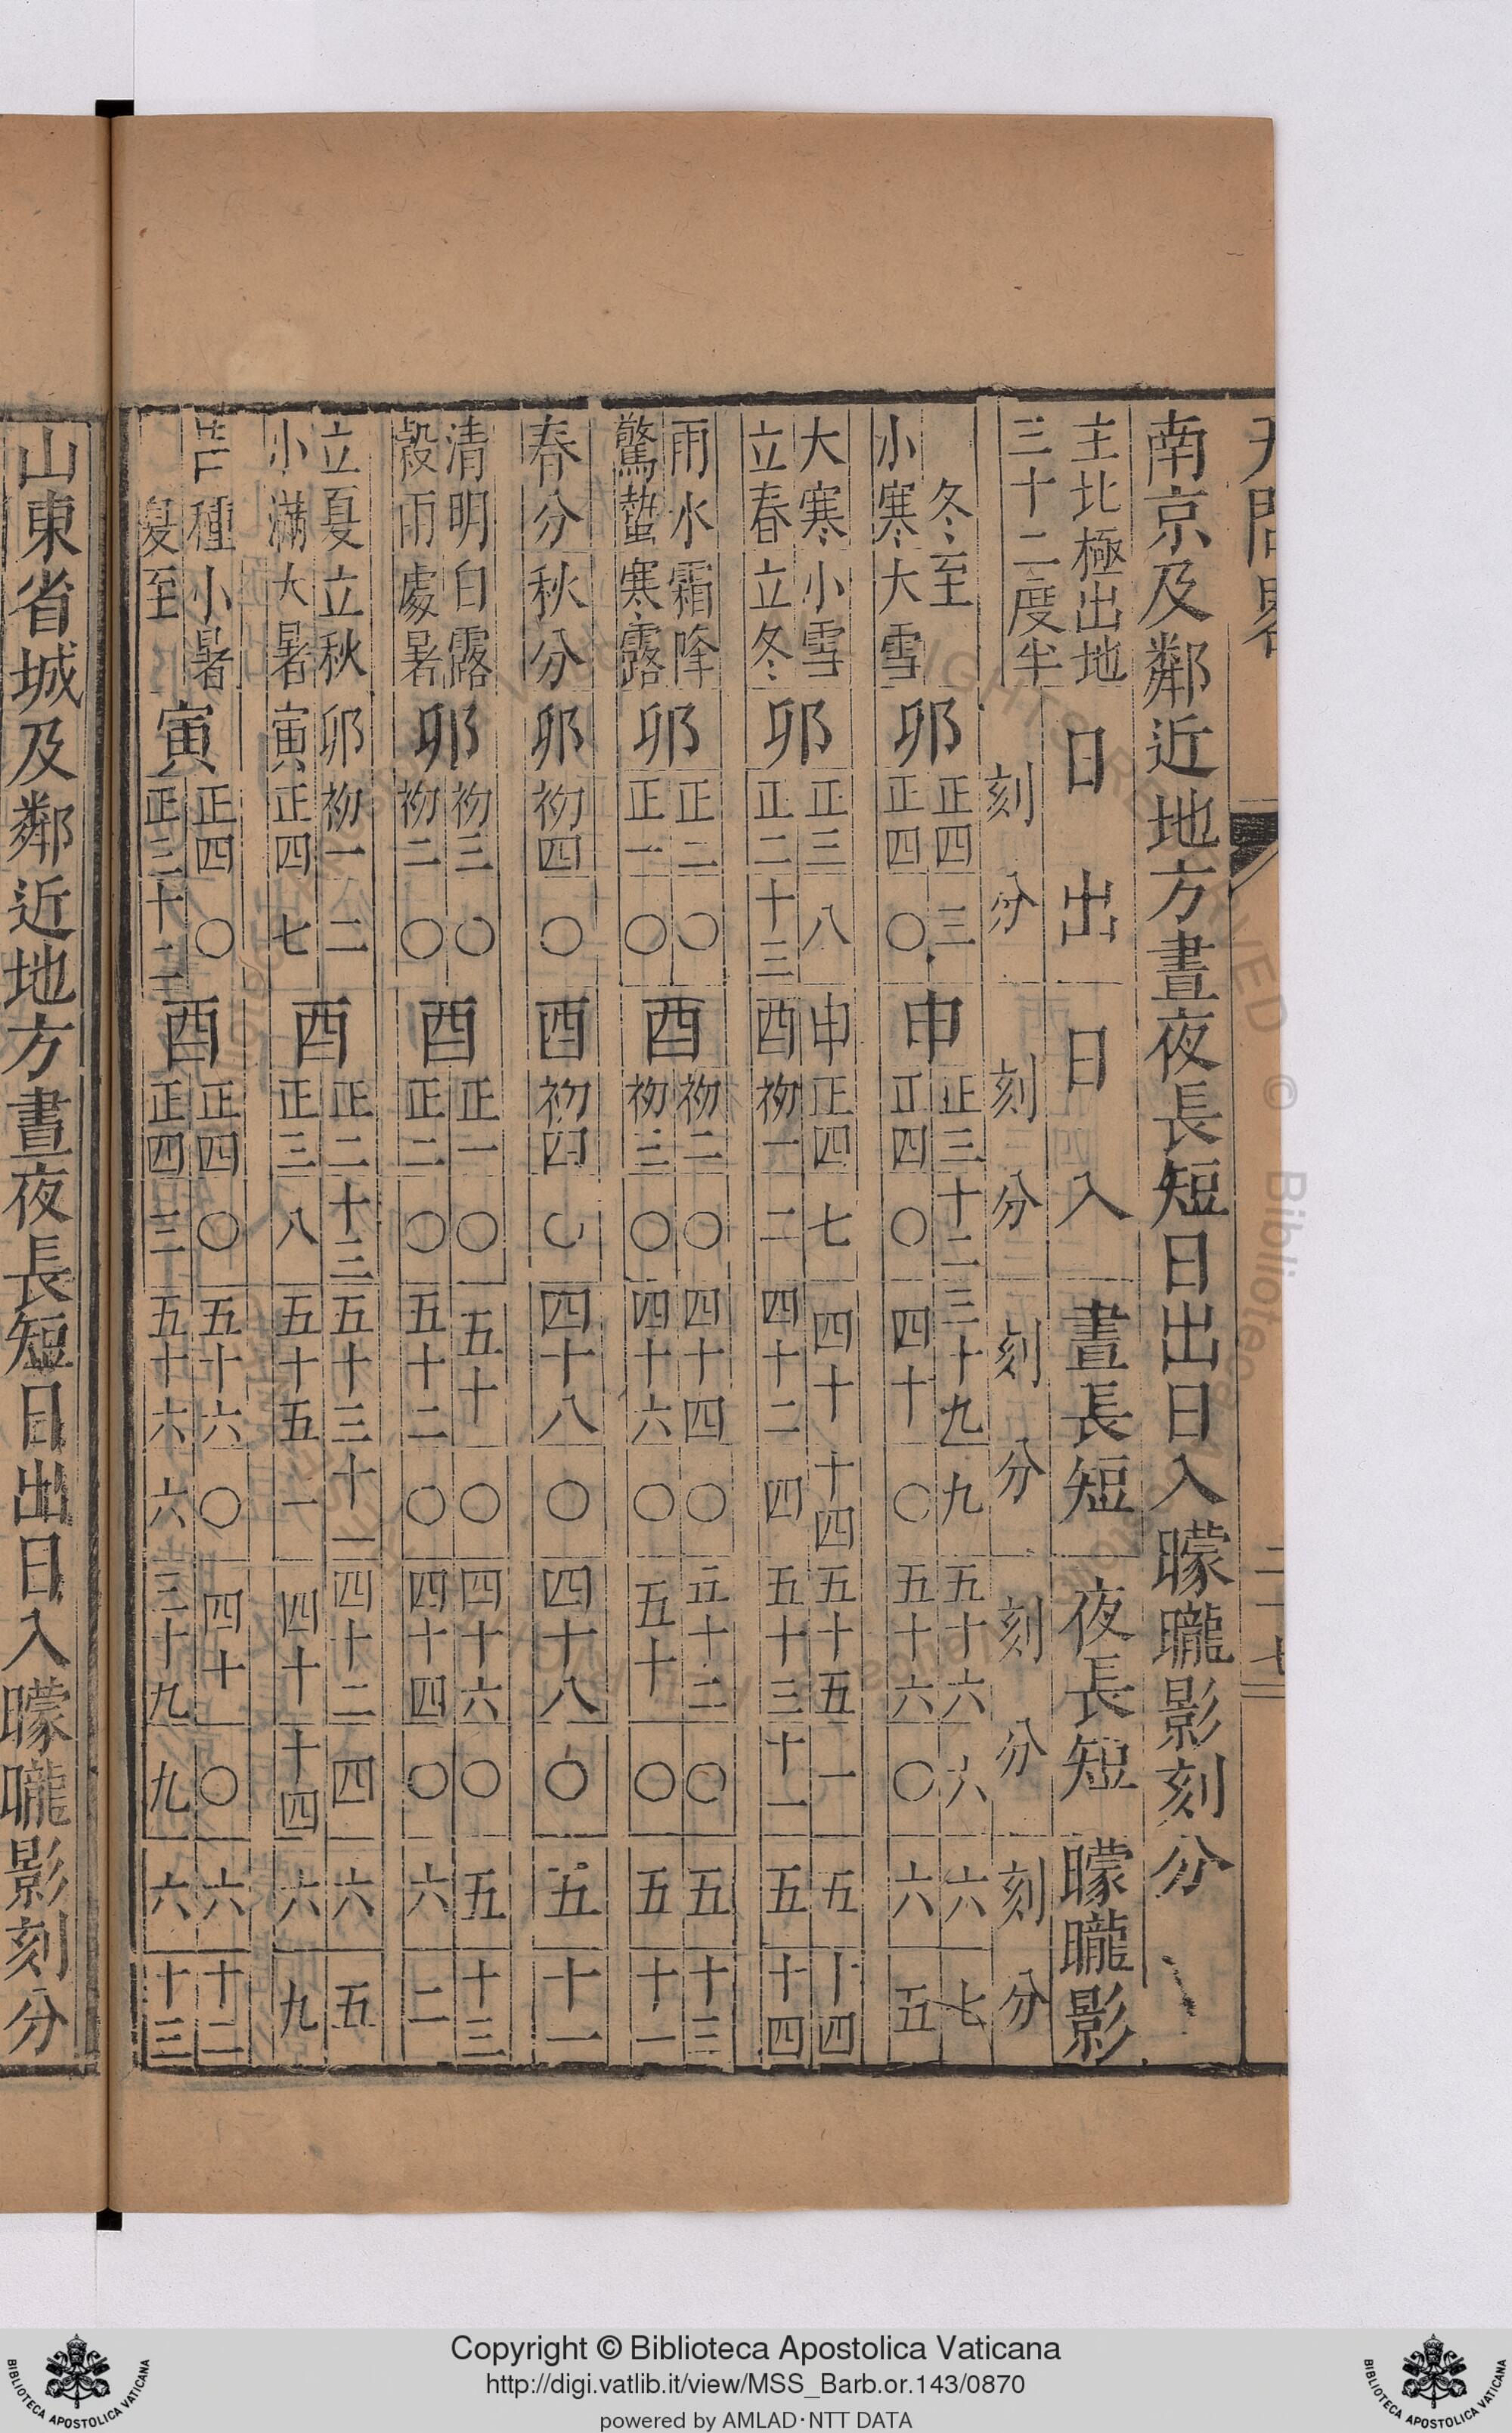 南京及鄰近地方晝夜長短日出日入曚曨影刻分
主北極出地
三十二度半
日出 日入 晝長短 夜長短 曚曨影
刻 分 刻 分 刻 分 刻 分 刻 分
冬至 卯 正四 三 申 正三 十二 三十九 九 五十六 六 六 七
小寒 大雪 正四 〇 正四 〇 四十 〇 五十六 〇 六 五
大寒 小雪 卯 正三 八 申 正四 七 四十 十四 五十五 一 五 十四
立春 立冬 正二 十三 酉 初一 二 四十二 四 五十三 十一 五 十四
雨水 霜降 卯 正二 〇 酉 初二 〇 四十四 〇 五十二 〇 五 十三
驚蟄 寒露 正一 〇 初三 〇 四十六 〇 五十 〇 五 十一
春分 秋分 卯 初四 〇 酉 初四 〇 四十八 〇 四十八 〇 五 十一
清明 白露 卯 初三 〇 酉 正一 〇 五十 〇 四十六 〇 五 十三
穀雨 處暑 初二 〇 正二 〇 五十二 〇 四十四 〇 六 二
立夏 立秋 卯 初一 二 酉 正二 十三 五十三 十一 四十二 四 六 五
小滿 大暑 寅 正四 七 正三 八 五十五 一 四十 十四 六 九
種 小暑 寅 正四 〇 酉 正四 〇 五十六 〇 四十 〇 六 十二
夏至 正三 十二 正四 三 五十六 六 三十九 九 六 十三
山東省城及鄰近地方晝夜長短日出日入曚曨影刻分
Copyright © Biblioteca Apostolica Vaticana
http://digi.vatlib.it/view/MSS_Barb.or.143/0870
powered by AMLAD·NTT DATA
BIBLIOTECA APOSTOLICA VATICANA
BIBLIOTECA APOSTOLICA VATICANA